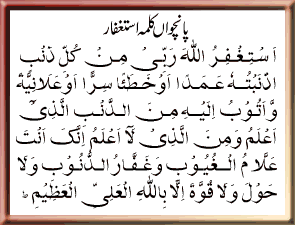 پانچواں کلمہ استغفار
اَسْتَغْفِرُ اللهَ رَبِّىْ مِنْ كُلِّ ذَنْۢبٍ
اَذْنَبْتُهٗ عَمَدًا اَوْ خَطَئًا سِرًّا اَوْ عَلَانِيَةً
وَّاَتُوْبُ اِلَيْهِ مِنَ الذَّنْۢبِ الَّذِىْٓ
اَعْلَمُ وَمِنَ الَّذِىْ لَآ اَعْلَمُ اِنَّكَ اَنْتَ
عَلَّامُ الْغُيُوْبِ وَغَفَّارُ الذُّنُوْبِ وَلَا
حَوْلَ وَلَا قُوَّةَ اِلَّا بِاللهِ الْعَلِىِّ الْعَظِيْمِ ؕ